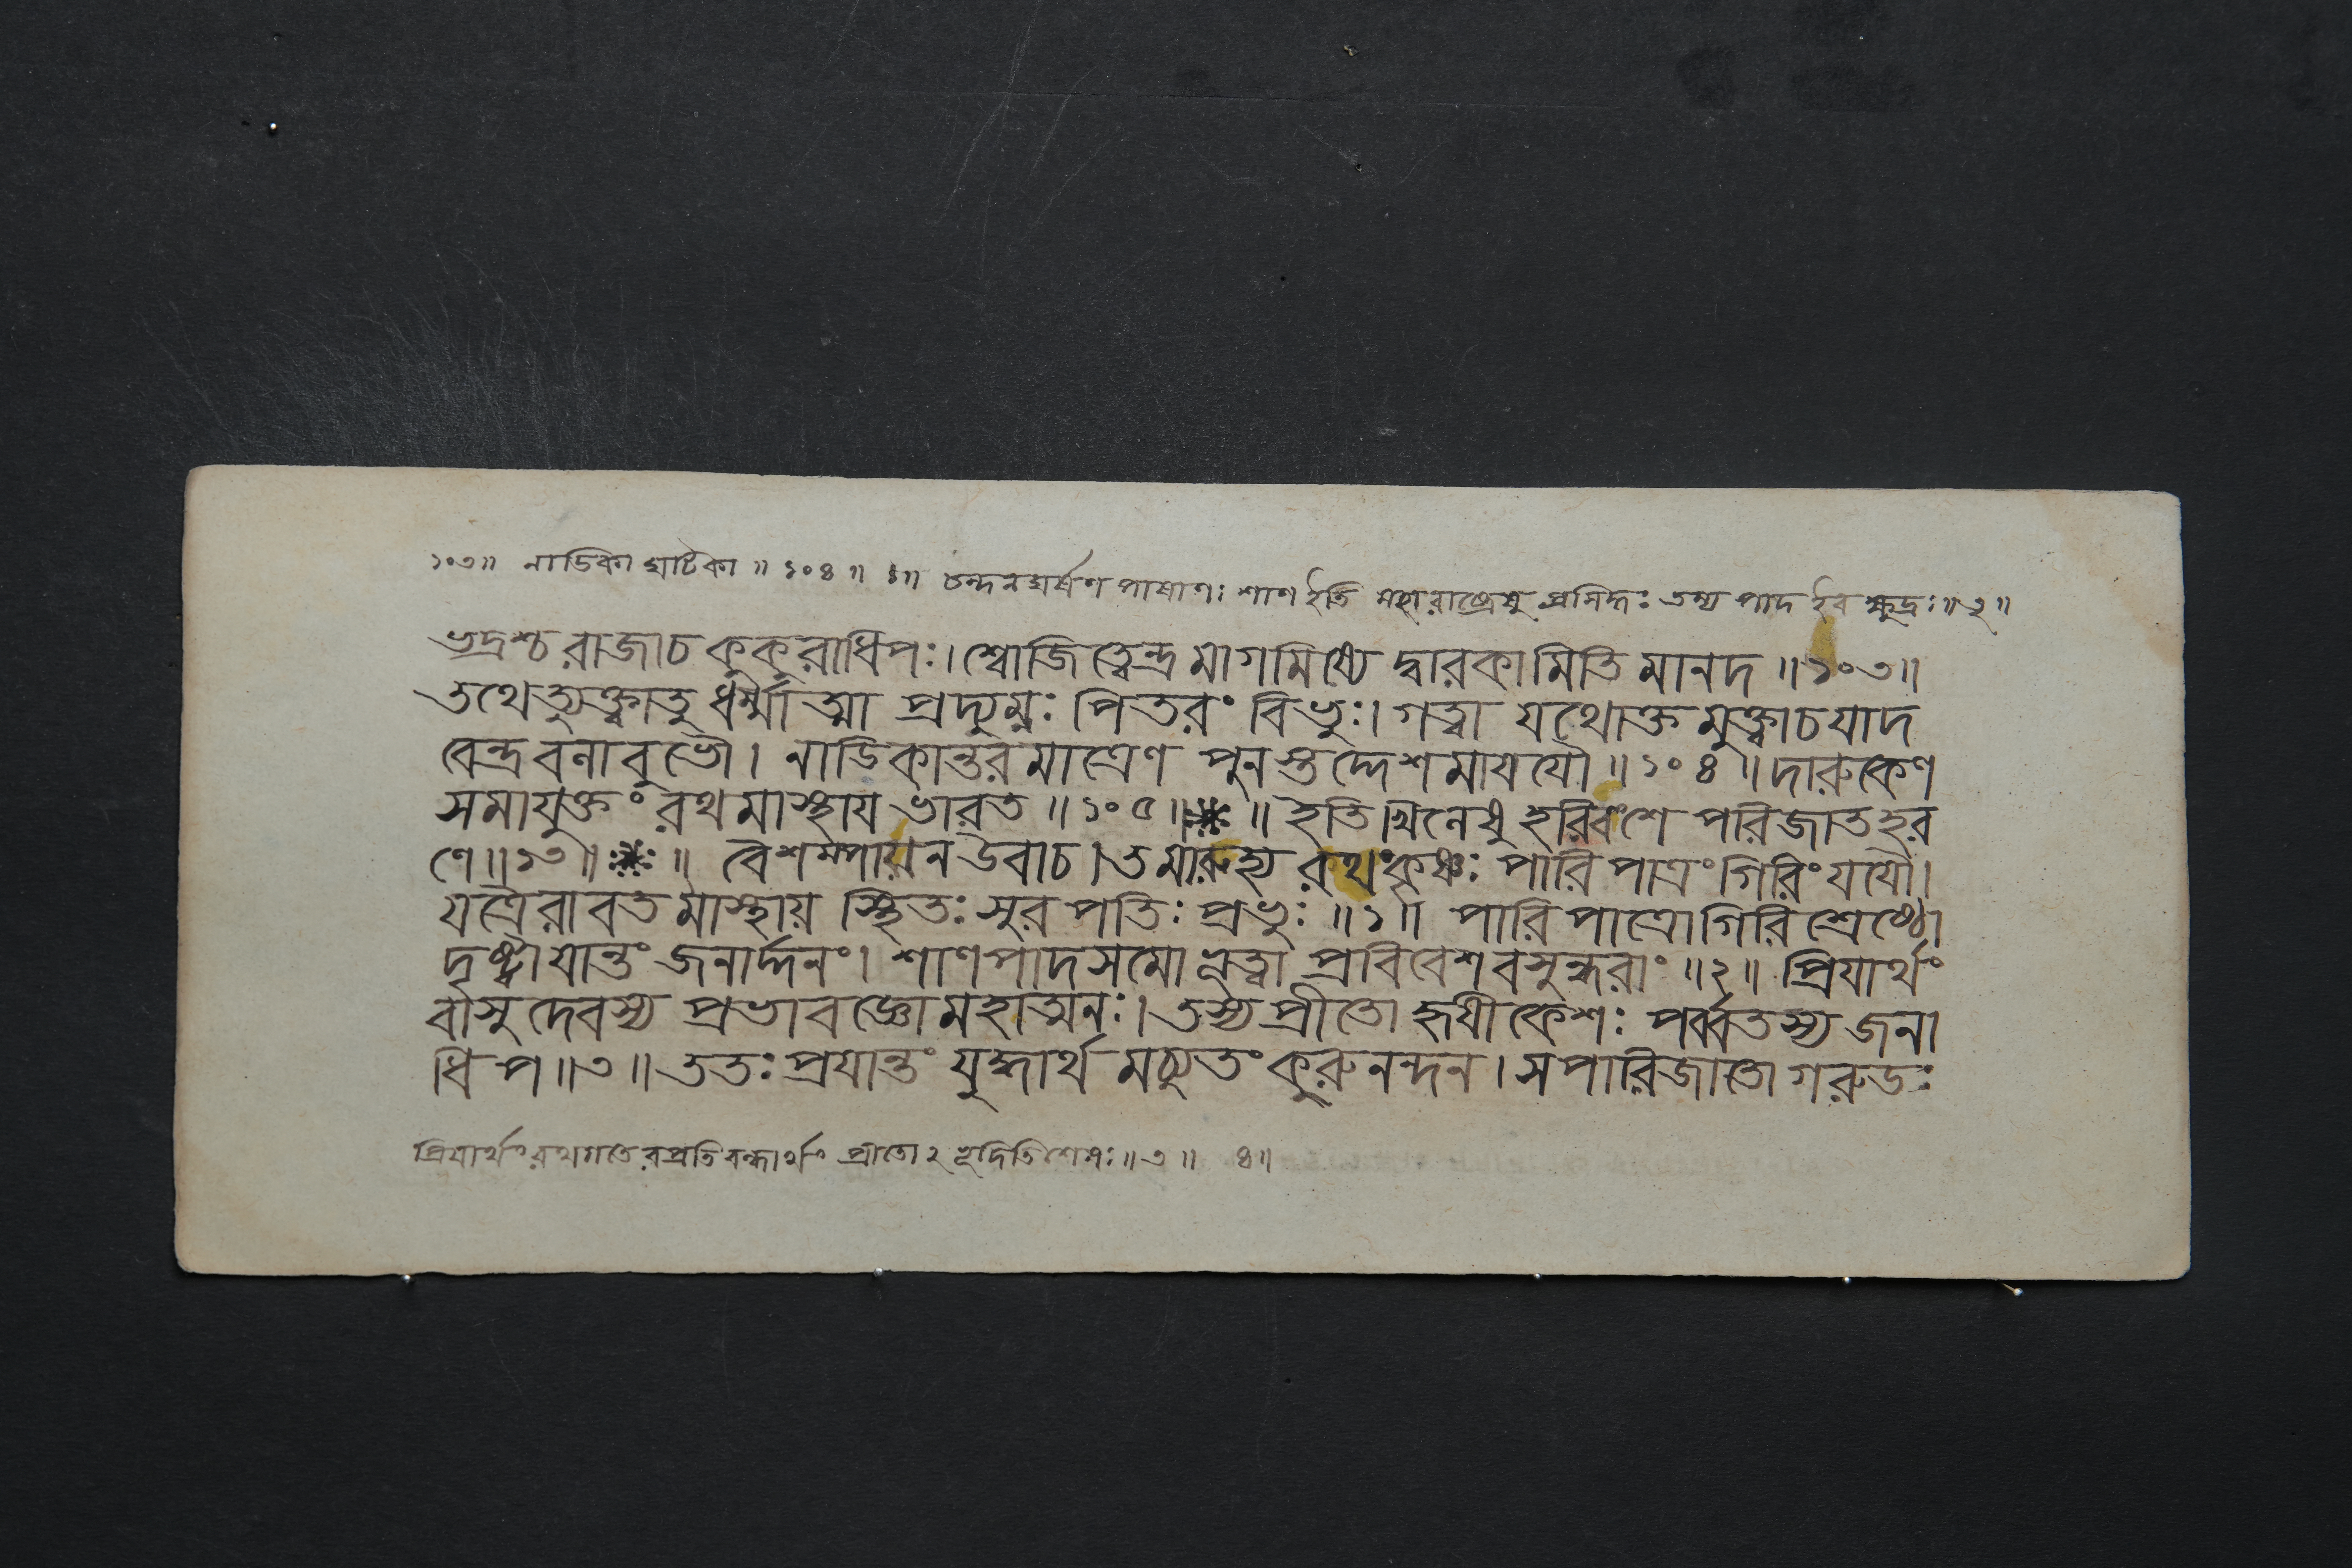 ১০৩॥ নাডিকা ঘটিকা ॥ ১০৪ ॥ ১॥ চন্দনঘর্ষণ পাষাণঃ শাণ ইতি মহারাষ্ট্রেষু প্রসিদ্ধঃ তস্য পাদ ইব ক্ষুদ্রঃ॥২॥
ভদ্রশ্চ রাজাচ কুকুরাধিপঃ। শ্বোজিত্বেন্দ্র মাগমিষ্যে দ্বারকামিতি মানদ ॥১০৩॥
তথেত্যুক্ত্বাতু ধর্ম্মাত্মা প্রদ্যুম্নঃ পিতরং বিভুঃ। গত্বা যথোক্ত মুক্ত্বাচযাদ
বেন্দ্রবনাবুভৌ। নাডিকান্তরমাত্রেণ পুনস্তদ্দেশমাযযৌ ॥১০৪॥ দারুকেণ
সমাযুক্তং রথমাস্থায ভারত ॥১০৫॥ ॥ ইতি খিলেষু হরিবংশে পরিজাতহর
ণে॥১৩॥ ॥ বৈশম্পায়ন উবাচ। তমারুহ্য রথংকৃষ্ণঃ পারিপাত্রংগিরিংযযৌ।
যত্রৈরাবত মাস্থায় স্থিতঃ সুরপতিঃ প্রভুঃ ॥১॥ পারিপাত্রোগিরিশ্রেষ্ঠো
দৃষ্ট্বাযান্তং জনার্দ্দনং। শাণপাদসমো ভূত্বা প্রবিবেশবসুন্ধরাং ॥২॥ প্রিযার্থং
বাসুদেবস্য প্রভাবজ্ঞো মহাত্মনঃ। তস্য প্রীতো হৃষীকেশঃ পর্ব্বতস্য জনা
ধিপ॥৩॥ ততঃ প্রযান্তং যুদ্ধার্থ মচ্যুতং কুরুনন্দন। সপারিজাতো গরুডঃ
প্রিযার্থং রথগতেরপ্রতিবন্ধার্থং প্রীতো২ভূদিতিশেষঃ॥৩॥ ৪॥